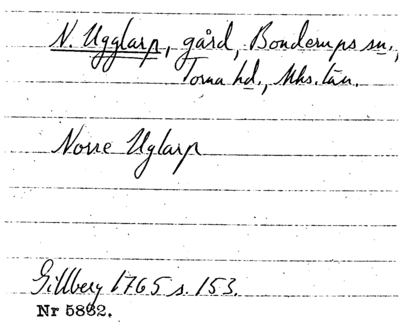 N. Ugglarp, gård, Bonderups sn.,
Torna hd., Mhs. län.
Norre Uglarp
Gillberg 1765 s. 153.
Nr 5882.